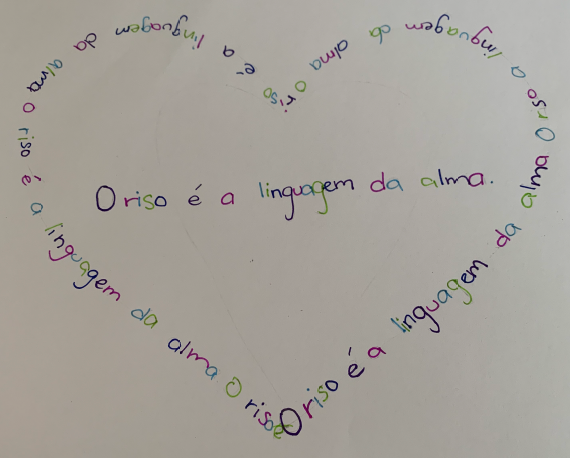 O riso é a linguagem da alma.
O riso é a linguagem da alma O rso a linguagem da alma o riso é a linguagem da alma o riso é a linguagem da alma O riso é